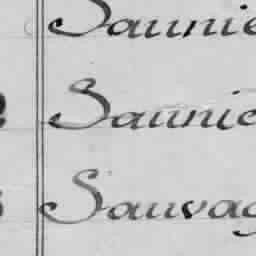 Saunie
Saunie
Sauvag